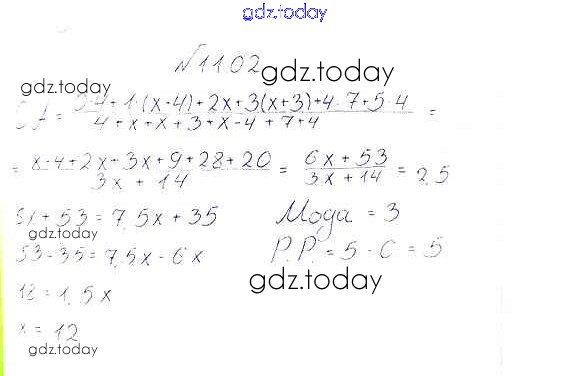 gdz.today
№1102
gdz.today
gdz.today
СА = (0·4 + 1·(x-4) + 2x + 3(x+3) + 4·7 + 5·4) / (4 + x + x + 3 + x - 4 + 7 + 4) =
= (x - 4 + 2x + 3x + 9 + 28 + 20) / (3x + 14) = (6x + 53) / (3x + 14) = 2,5
6x + 53 = 7,5x + 35
Мода = 3
gdz.today
53 - 35 = 7,5x - 6x
Р.Р. = 5 - 0 = 5
gdz.today
18 = 1,5x
x = 12
gdz.today